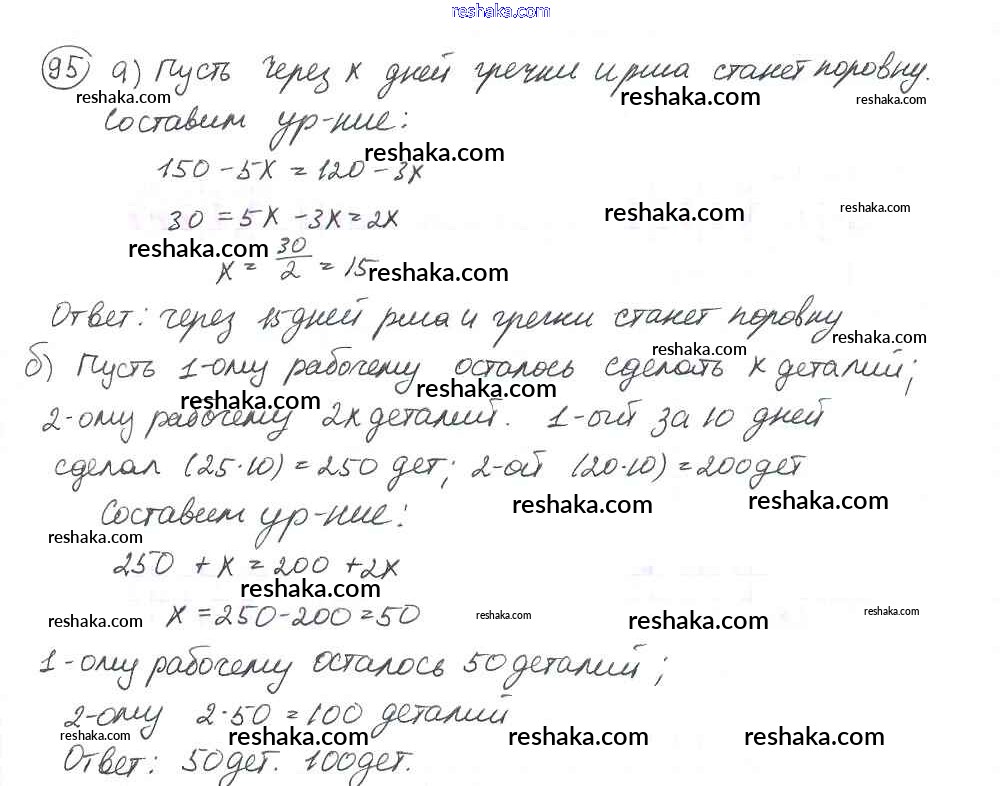 reshaka.com
95 а) Пусть через x дней гречки и риса станет поровну.
reshaka.com reshaka.com reshaka.com
Составим ур-ние:
reshaka.com
150 - 5x = 120 - 3x
reshaka.com reshaka.com
30 = 5x - 3x = 2x
reshaka.com
x = 30/2 = 15
reshaka.com
Ответ: через 15 дней риса и гречки станет поровну
reshaka.com reshaka.com
б) Пусть 1-ому рабочему осталось сделать x деталий;
reshaka.com reshaka.com
2-ому рабочему 2x деталий. 1-ый за 10 дней
сделал (25·10) = 250 дет; 2-ой (20·10) = 200 дет
reshaka.com reshaka.com
Составим ур-ние:
reshaka.com
250 + x = 200 + 2x
reshaka.com
x = 250 - 200 = 50
reshaka.com reshaka.com reshaka.com reshaka.com
1-ому рабочему осталось 50 деталий;
2-ому 2·50 = 100 деталий
reshaka.com reshaka.com reshaka.com reshaka.com
Ответ: 50 дет. 100 дет.